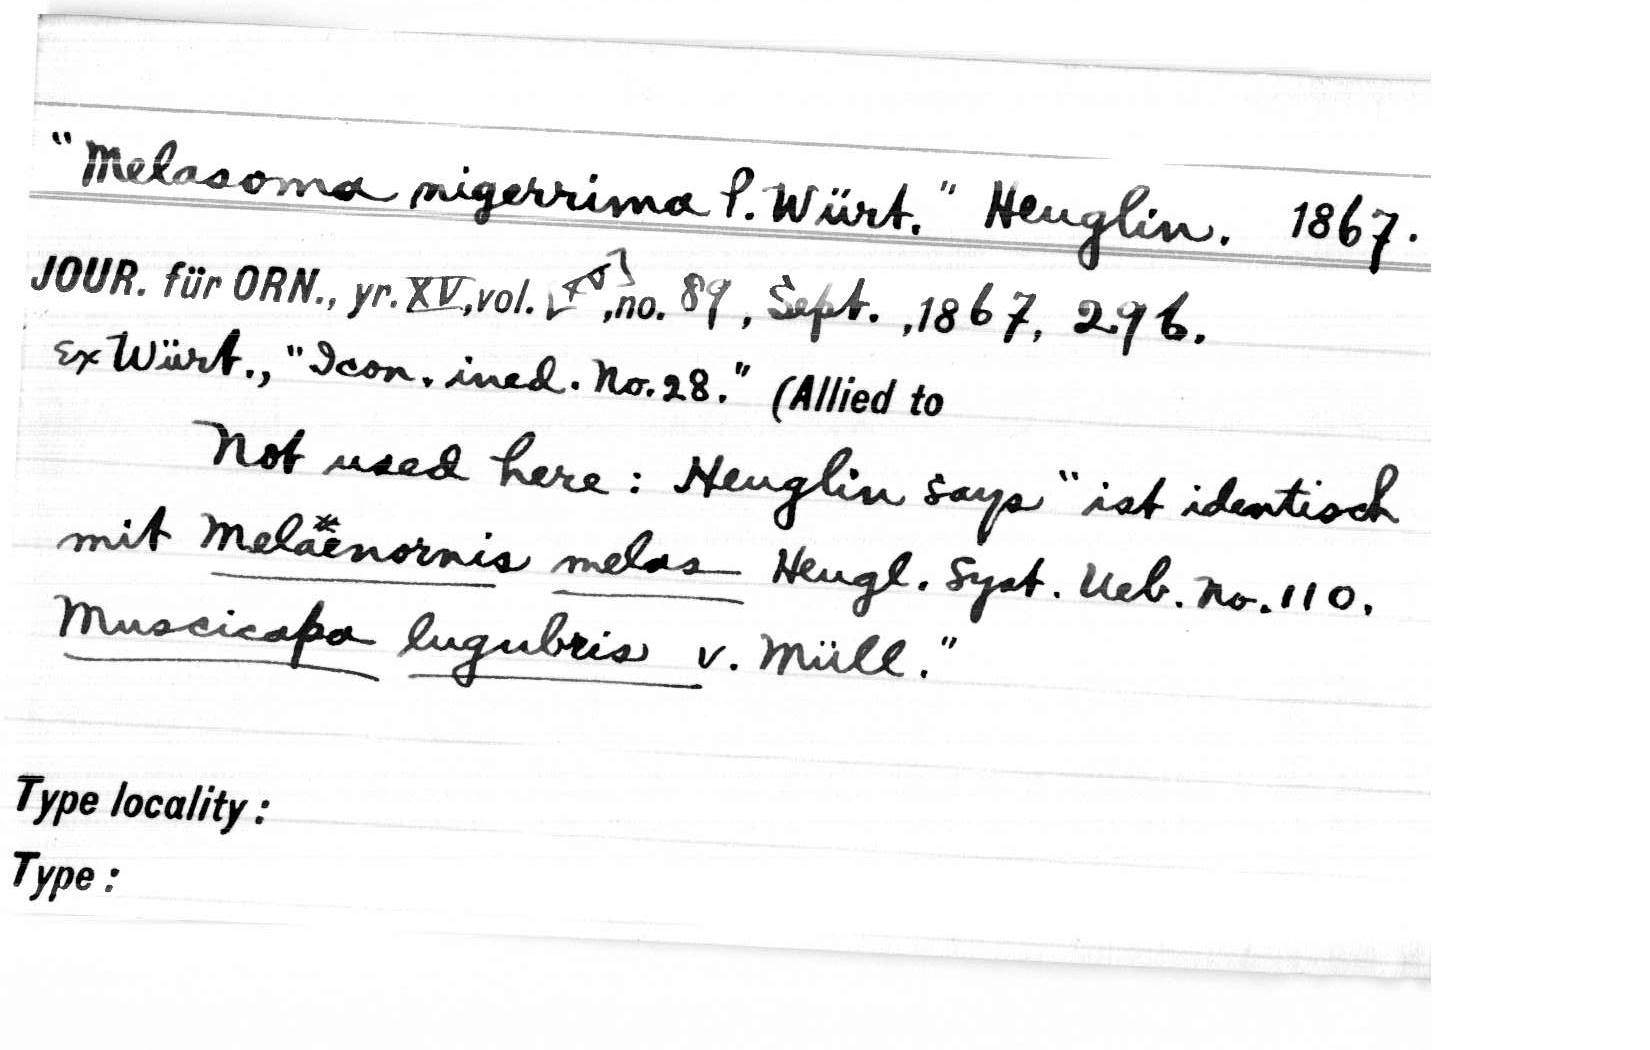 "Melasoma nigerrima P. Würt." Heuglin. 1867.
JOUR. für ORN., yr. XV, vol. [XV], no. 89, Sept., 1867, 296.
Ex Würt., "Icon. ined. No. 28." (Allied to
Not used here: Heuglin says "ist identisch
mit Meläenornis melas Heugl. Syst. Ueb. No. 110.
Muscicapa lugubris v. Müll."
Type locality:
Type: